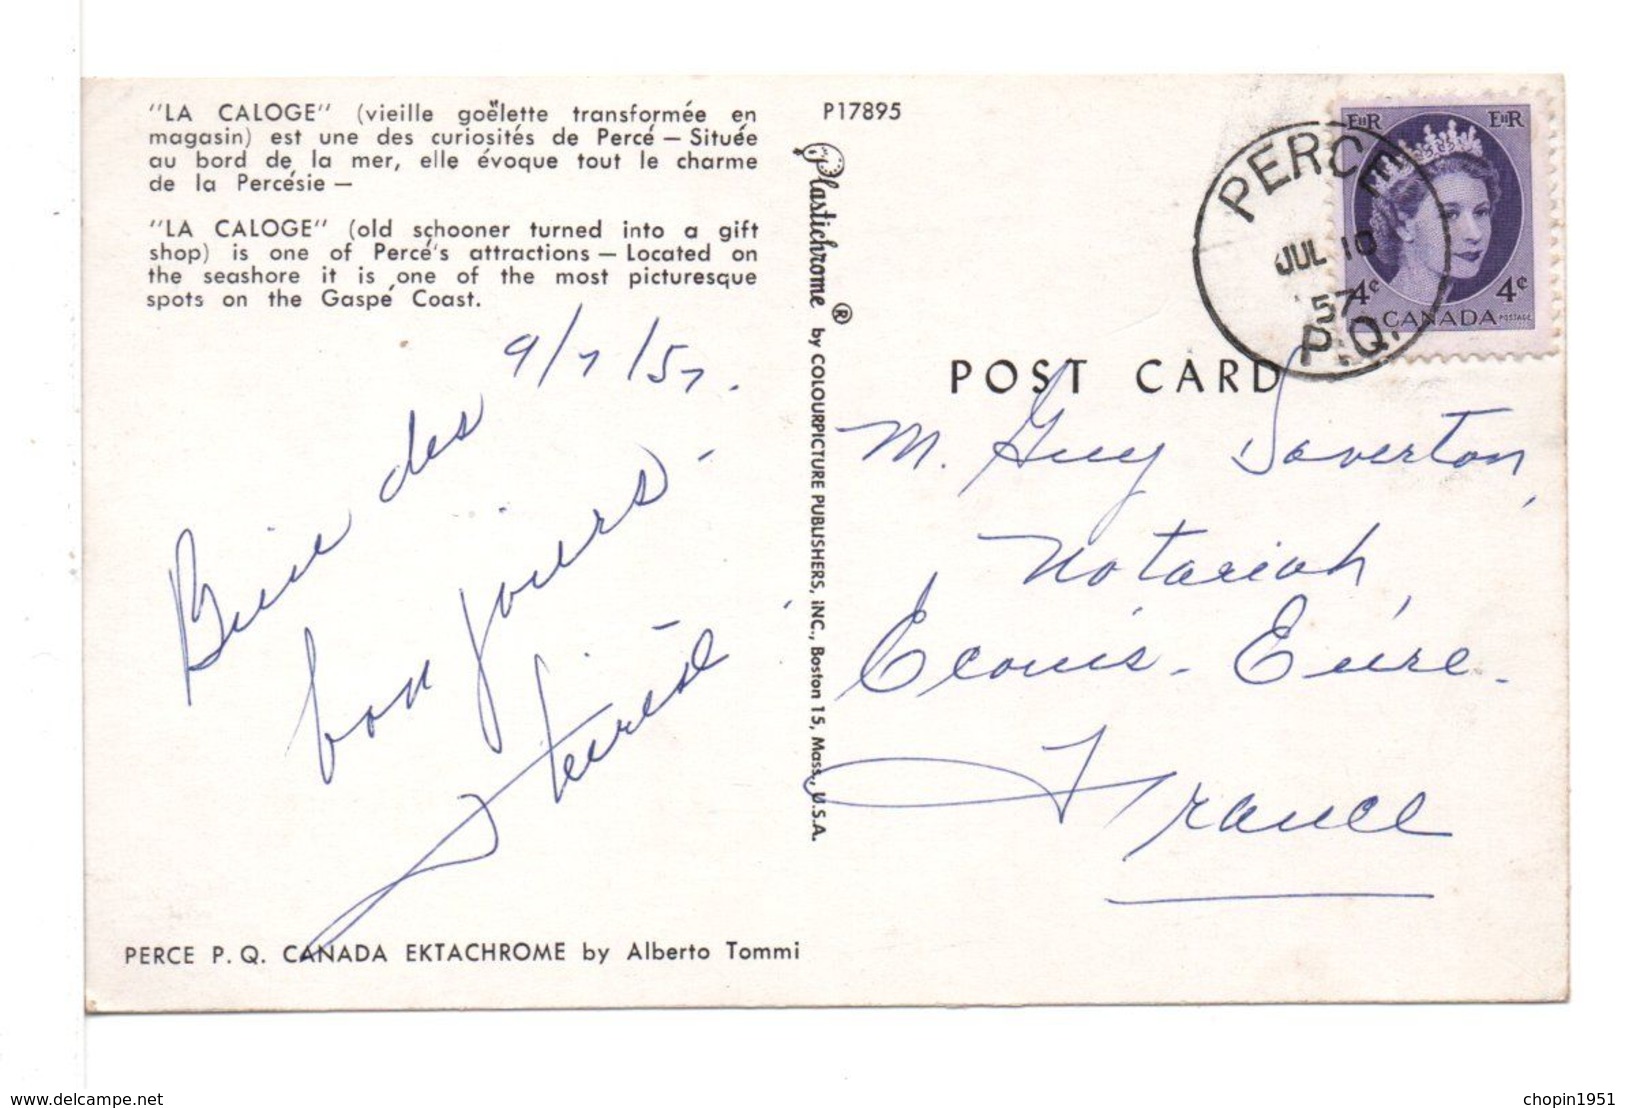 "LA CALOGE" (vieille goëlette transformée en
magasin) est une des curiosités de Percé — Située
au bord de la mer, elle évoque tout le charme
de la Percésie —
"LA CALOGE" (old schooner turned into a gift
shop) is one of Percé's attractions — Located on
the seashore it is one of the most picturesque
spots on the Gaspé Coast.
9/7/57.
Bien des
bonjours.
Thérèse
PERCE P. Q. CANADA EKTACHROME by Alberto Tommi
P17895
Plastichrome ® by COLOURPICTURE PUBLISHERS, INC., Boston 15, Mass., U.S.A.
EIIR EIIR
4¢ 4¢
CANADA POSTAGE
PERCE
JUL 10
'57
P.Q.
POST CARD
M. Guy Saverton,
Notariat,
Ecouis - Eure.
France
www.delcampe.net
chopin1951